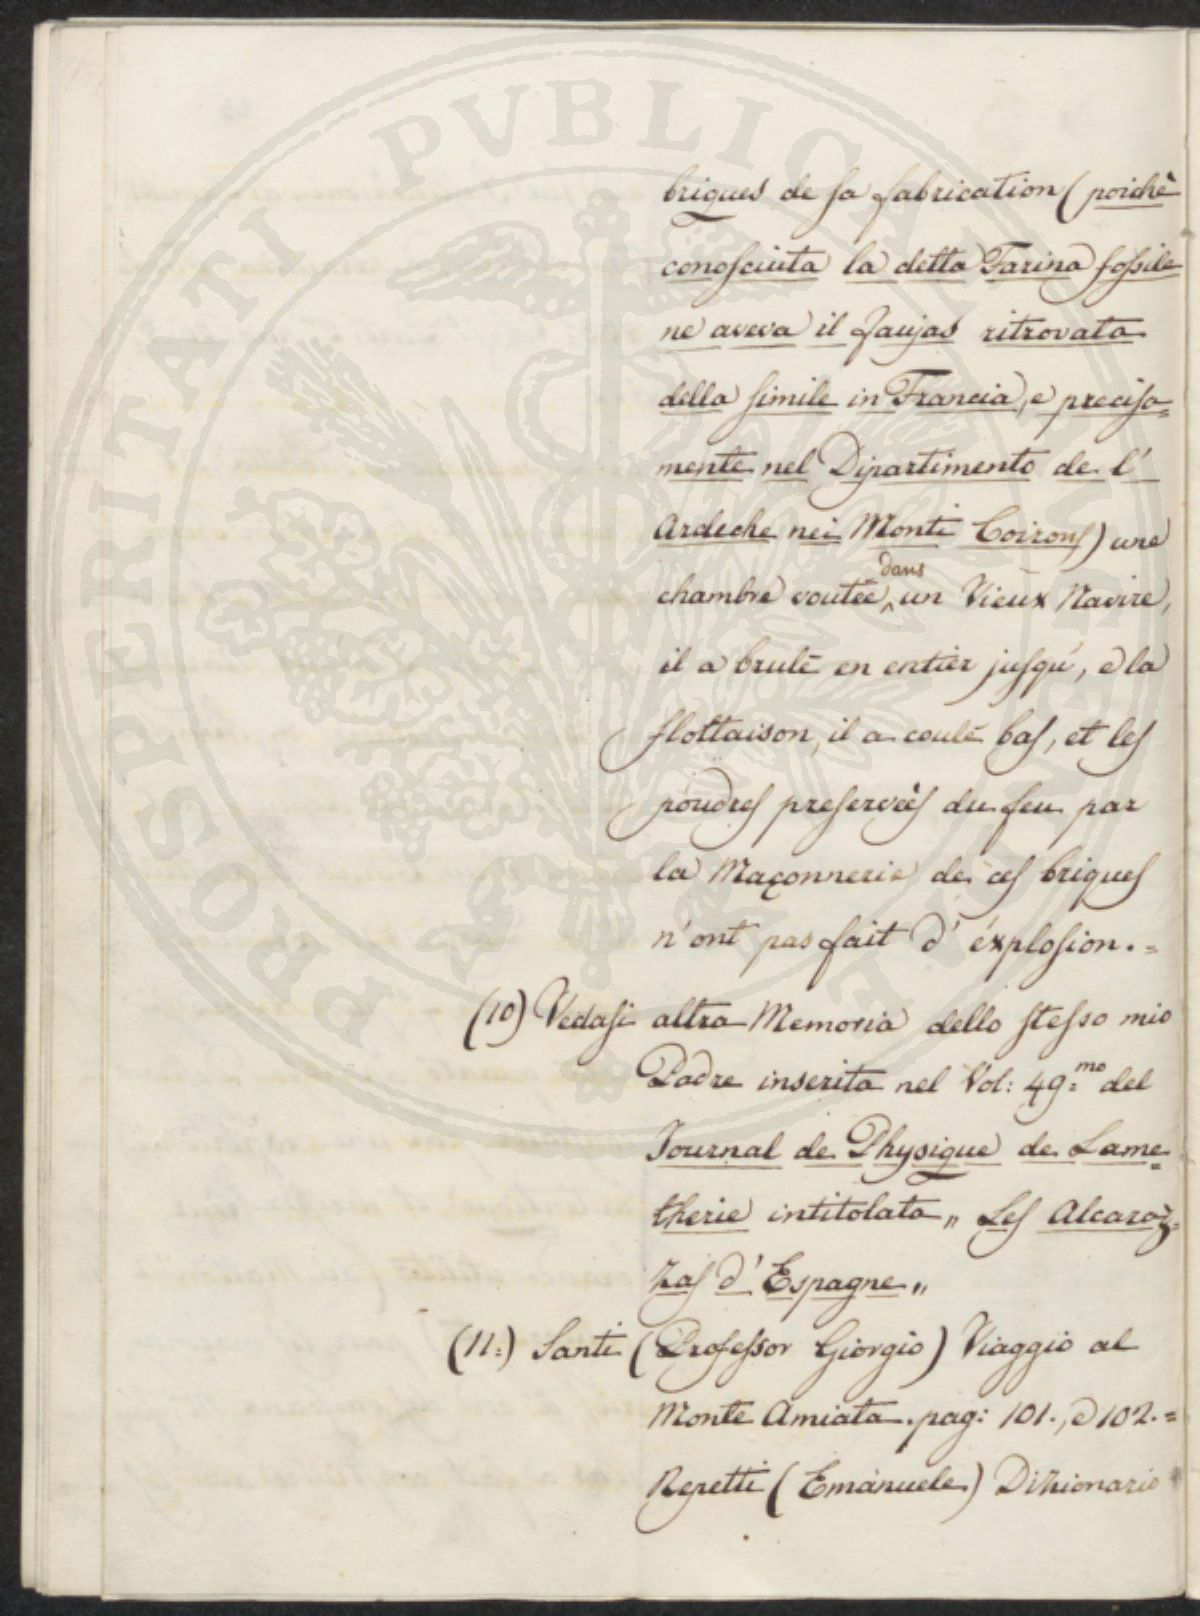 briques de sa fabrication (poichè
conosciuta la detta Farina fossile
ne aveva il Faujas ritrovata
della simile in Francia, e precisa=
mente nel Dipartimento de l'
Ardeche nei Monti Coirons) une
chambre voutée dans un Vieux Navire,
il a brulé en entier jusqu', à la
flottaison, il a coulé bas, et les
poudres preservées du feu par
la Maçonnerie de ces briques
n'ont pas fait d'éxplosion.=
(10) Vedasi altra Memoria dello stesso mio
Padre inserita nel Vol: 49.mo del
Journal de Physique de Lame=
therie intitolata „ Les Alcaraz=
zas d'Espagne „
(11.) Santi (Professor Giorgio) Viaggio al
Monte Amiata. pag: 101., e 102.=
Repetti (Emanuele) Dizionario
PROSPERITATI PVBLICAE